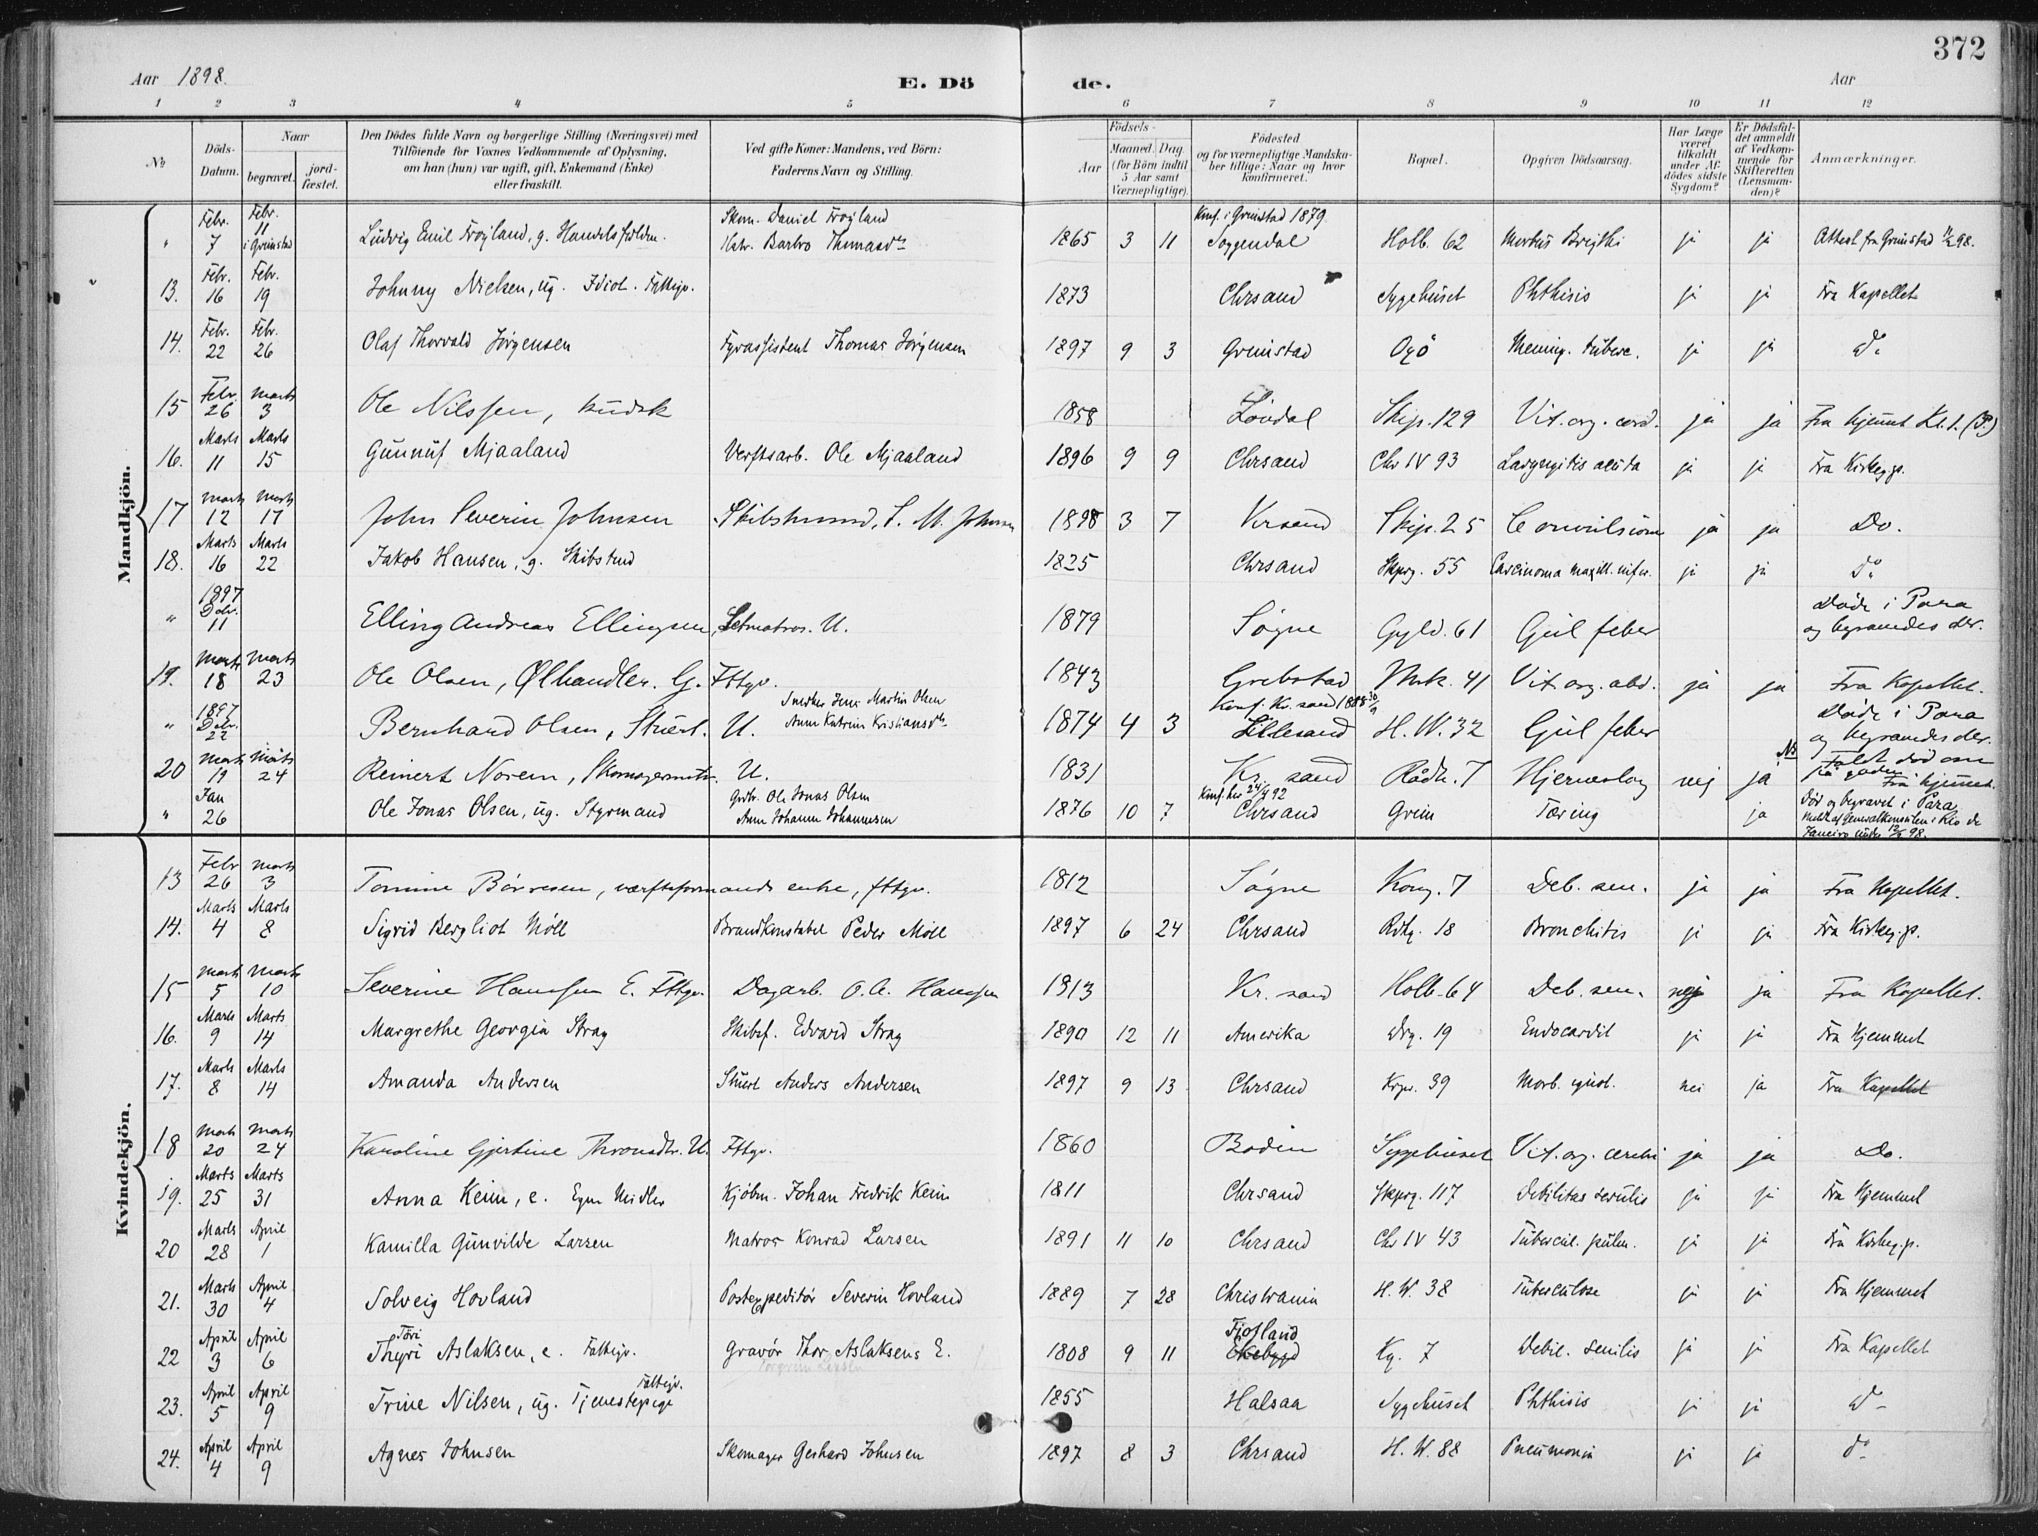 372
Aar 1898. E. Dö de. Aar
1 2 3 4 5 6 7 8 9 10 11 12
No Döds-Datum. Naar begravet. jordfæstet. Den Dödes fulde Navn og borgerlige Stilling (Næringsvei) med Tilföiende for Voxnes Vedkommende af Oplysning, om han (hun) var ugift, gift, Enkemand (Enke) eller fraskilt. Ved gifte Koner: Mandens, ved Börn: Faderens Navn og Stilling. Födsels- Aar Maaned. Dag. (for Börn indtil 5 Aar samt Værnepligtige). Födested og for værnepligtige Mandskaber tillige: Naar og hvor konfirmeret. Bopæl. Opgiven Dödsaarsag. Har Læge været tilkaldt under Afdödes sidste Sygdom? Er Dödsfaldet anmeldt af Vedkommende for Skifteretten (Lensmanden)? Anmærkninger.
Mandkjön.
" Febr. 7 Febr. 11 i Grimstad Ludvig Emil Frøjland, g. Skom. Daniel Frøjland Barbro 1865 3 11 Konf. i Grimstad 1879 Soggendal Holb. 62 Morbus Brejthi ja ja Attest fra Grimstad 98.
13. Febr. 16 Febr. 19 Johnny Nielsen, ug. Idiot. Fattigv. 1873 Chrsand Sygehuset Phthisis ja ja Fra Kapellet
14. Febr. 22 Febr. 26 Olaf Thorvald Jørgensen Fyrassistent Thomas Jørgensen 1897 9 3 Grimstad Ogö Mening. tuberc. ja ja do
15 Febr. 26 Marts 3 Ole Nilssen, kudsk 1858 Skip. 129 Vit. org. cord. ja ja Fra hjemmet
16. Marts 11 Marts 15 Gunnuf Mjaaland Verftsarb. Ole Mjaaland 1896 9 9 Chrsand Chr IV 93 Laryngitis acuta ja ja Fra Kirkeg.
17 Marts 12 Marts 17 John Severin Johnsen Skibstmmd. S. M. Johnsen 1898 3 7 Krsand Skip. 25 Convulsion ja ja Do.
18. Marts 16 Marts 22 Jakob Hansen, g. Skibstmd 1825 Chrsand Skprg. 55 Carcinoma maxill. infer. ja ja do
" 1897 Decbr. 11 Elling Andreas Ellingsen, Letmatros. U. 1879 Søgne Gyld. 61 Gul feber Døde i Para og begravedes der.
19. Marts 18 Marts 23 Ole Olsen, Ølhandler. G. Fttgv. 1843 Grebstad Mrk. 41 Vit. org. abd. ja ja Fra Kapellet.
" 1897 Decbr. 22 Bernhard Olsen, Stuert. U. Snedker Jens Martin Olsen Anne Katrine Kristiansdtr 1874 4 3 Konf. Kr.sand 1888 Lillesand H.W. 32 Gul feber Døde i Para og begravedes der.
20 Marts 19 Marts 24 Reinert Norem, Skomagermstr. U. 1831 Kr. sand Rådh. 7 Hjerneslag nej ja Faldt død om på gaden Fra hjemmet.
" Jan 26 Ole Jonas Olsen, ug. Styrmand Ole Jonas Olsen Anne Johanne Johannesen 1876 10 7 Konf. her 24/4 92 Chrsand Grim Tæring ja Død og begravet i Para Meldt af Generalkonsulen i Rio de Janeiro under 98.
Kvindekjön.
13 Febr 26 Marts 3 Tomine Børresen, værftsformands enke, fttgv. 1812 Søgne Kong. 7 Deb. sen. ja ja Fra Kapellet.
14. Marts 4 Marts 8 Sigrid Bergliot Möll Brandkonstabel Peder Möll 1897 6 24 Chrsand Rdhg. 18 Bronchitis ja ja Fra Kirkeg.
15 Marts 5 Marts 10 Severine Hanssen E. Fttgv. Dagarb. O. A. Hanssen 1813 Kr. sand Holb. 64 Deb. sen. nej ja Fra Kapellet.
16. Marts 9 Marts 14 Margrethe Georgia Stray Skibsf. Edvard Stray 1890 12 11 Amerika Drg. 19 Endocardit ja ja Fra Hjemmet
17. Marts 8 Marts 14 Amanda Andersen Stuert Anders Andersen 1897 9 13 Chrsand 39 Morb. ignot. nei ja Fra Kapellet
18 Marts 20 Marts 24 Karoline Gjertine Thronsdtr. U. Fttgv. 1860 Bodin Sygehuset Vit. org. cerebri ja ja Do.
19. Marts 25 Marts 31 Anna Keim, e. Egne Midler Kjøbm. Johan Fredrik Keim 1811 Chrsand Skprg. 117 Debilitas senilis ja ja Fra Hjemmet
20 Marts 28 April 1 Kamilla Gunvilde Larsen Matros Konrad Larsen 1891 11 10 Chrsand Chr IV 43 Tubercul. pulm. ja ja Fra Kirkeg.
21. Marts 30 April 4 Solveig Hovland Postexpeditör Severin Hovland 1889 7 28 Christiania H.W. 38 Tuberculose ja ja Fra Hjemmet
22 April 3 April 6 Töri Thyri Aslaksen, e. Fattigv. Gravör Thor Aslaksens E. 1808 9 11 Fjotland Ekebygd Kg. 7 Debil. senilis ja ja Fra Kapellet
23. April 5 April 9 Trine Nilsen, ug. Tjenestepige Fattigv. 1855 Halsaa Sygehuset Phthisis ja ja do
24. April 4 April 9 Agnes Johnsen Skomager Gerhard Johnsen 1897 8 3 Chrsand H.W. 88 Pneumonia ja ja do